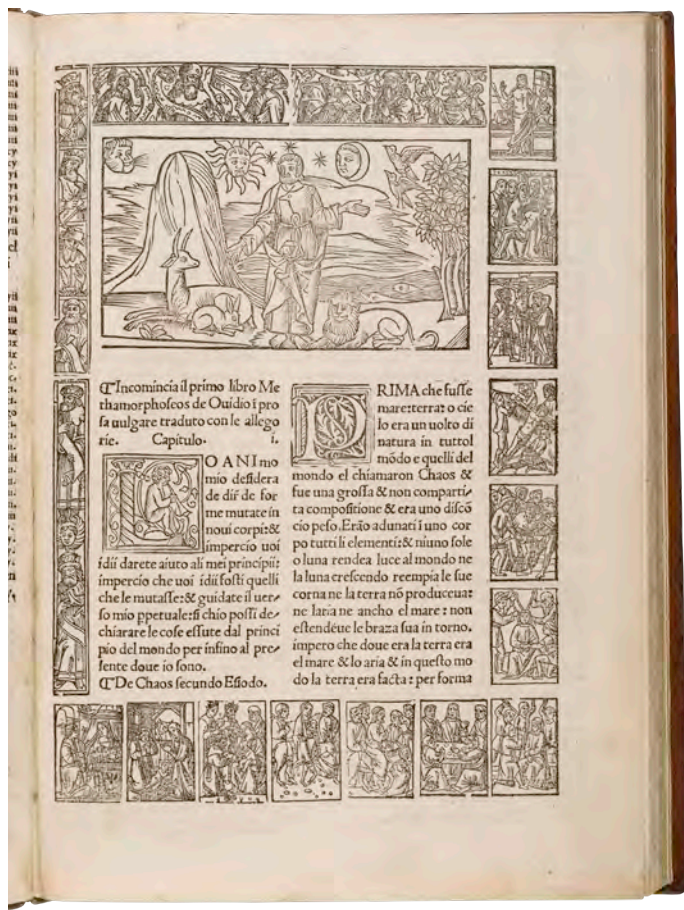 ⁋Incomincia il primo libro Me
thamorphoseos de Ouidio ī pro
sa uulgare traduto con le allego
rie. Capitulo. i.
LO ANImo
mio desidera
de dir̄ de for
me mutate in
noui corpi:&
impercio uoi
idii darete aiuto ali mei principii:
impercio che uoi idii fosti quelli
che le mutasse:& guidate il uer-
so mio ppetuale:si chio possi de-
chiarare le cose essute dal princi
pio del mondo per infino al pre-
sente doue io sono.
⁋De Chaos secundo Esiodo.
PRIMA che fusse
mare:terra: o cie
lo era un uolto di
natura in tuttol
mōdo e quelli del
mondo el chiamaron Chaos &
fue una grossa & non comparti-
ta compositione & era uno discō
cio peso. Erāo adunati ī uno cor
po tutti li elementi:& niuno sole
o luna rendea luce al mondo ne
la luna crescendo reempia le sue
corna ne la terra nō produceua:
ne laria ne ancho el mare : non
estendeue le braza sua in torno.
impero che doue era la terra era
el mare & lo aria & in questo mo
do la terra era facta : per forma